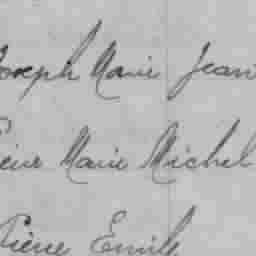 Joseph Marie Jean
Marie Michel
Pierre Emile